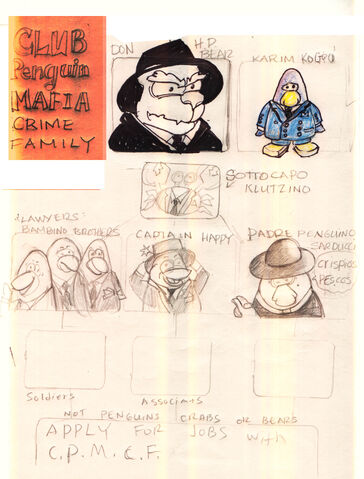 CLUB
Penguin
MAFIA
CRIME
FAMILY
DON H.P.
BEAR
KARIM KOGPO
SOTTOCAPO
KLUTZINO
LAWYERS:
BAMBINO BROTHERS
CAPTAIN HAPPY
PADRE PENGUINO
SARDUCCI
CRISPIOS
PESCOS
Soldiers
Associats
NOT PENGUINS CRABS OR BEARS
APPLY FOR JOBS WITH
C.P.M.C.F.